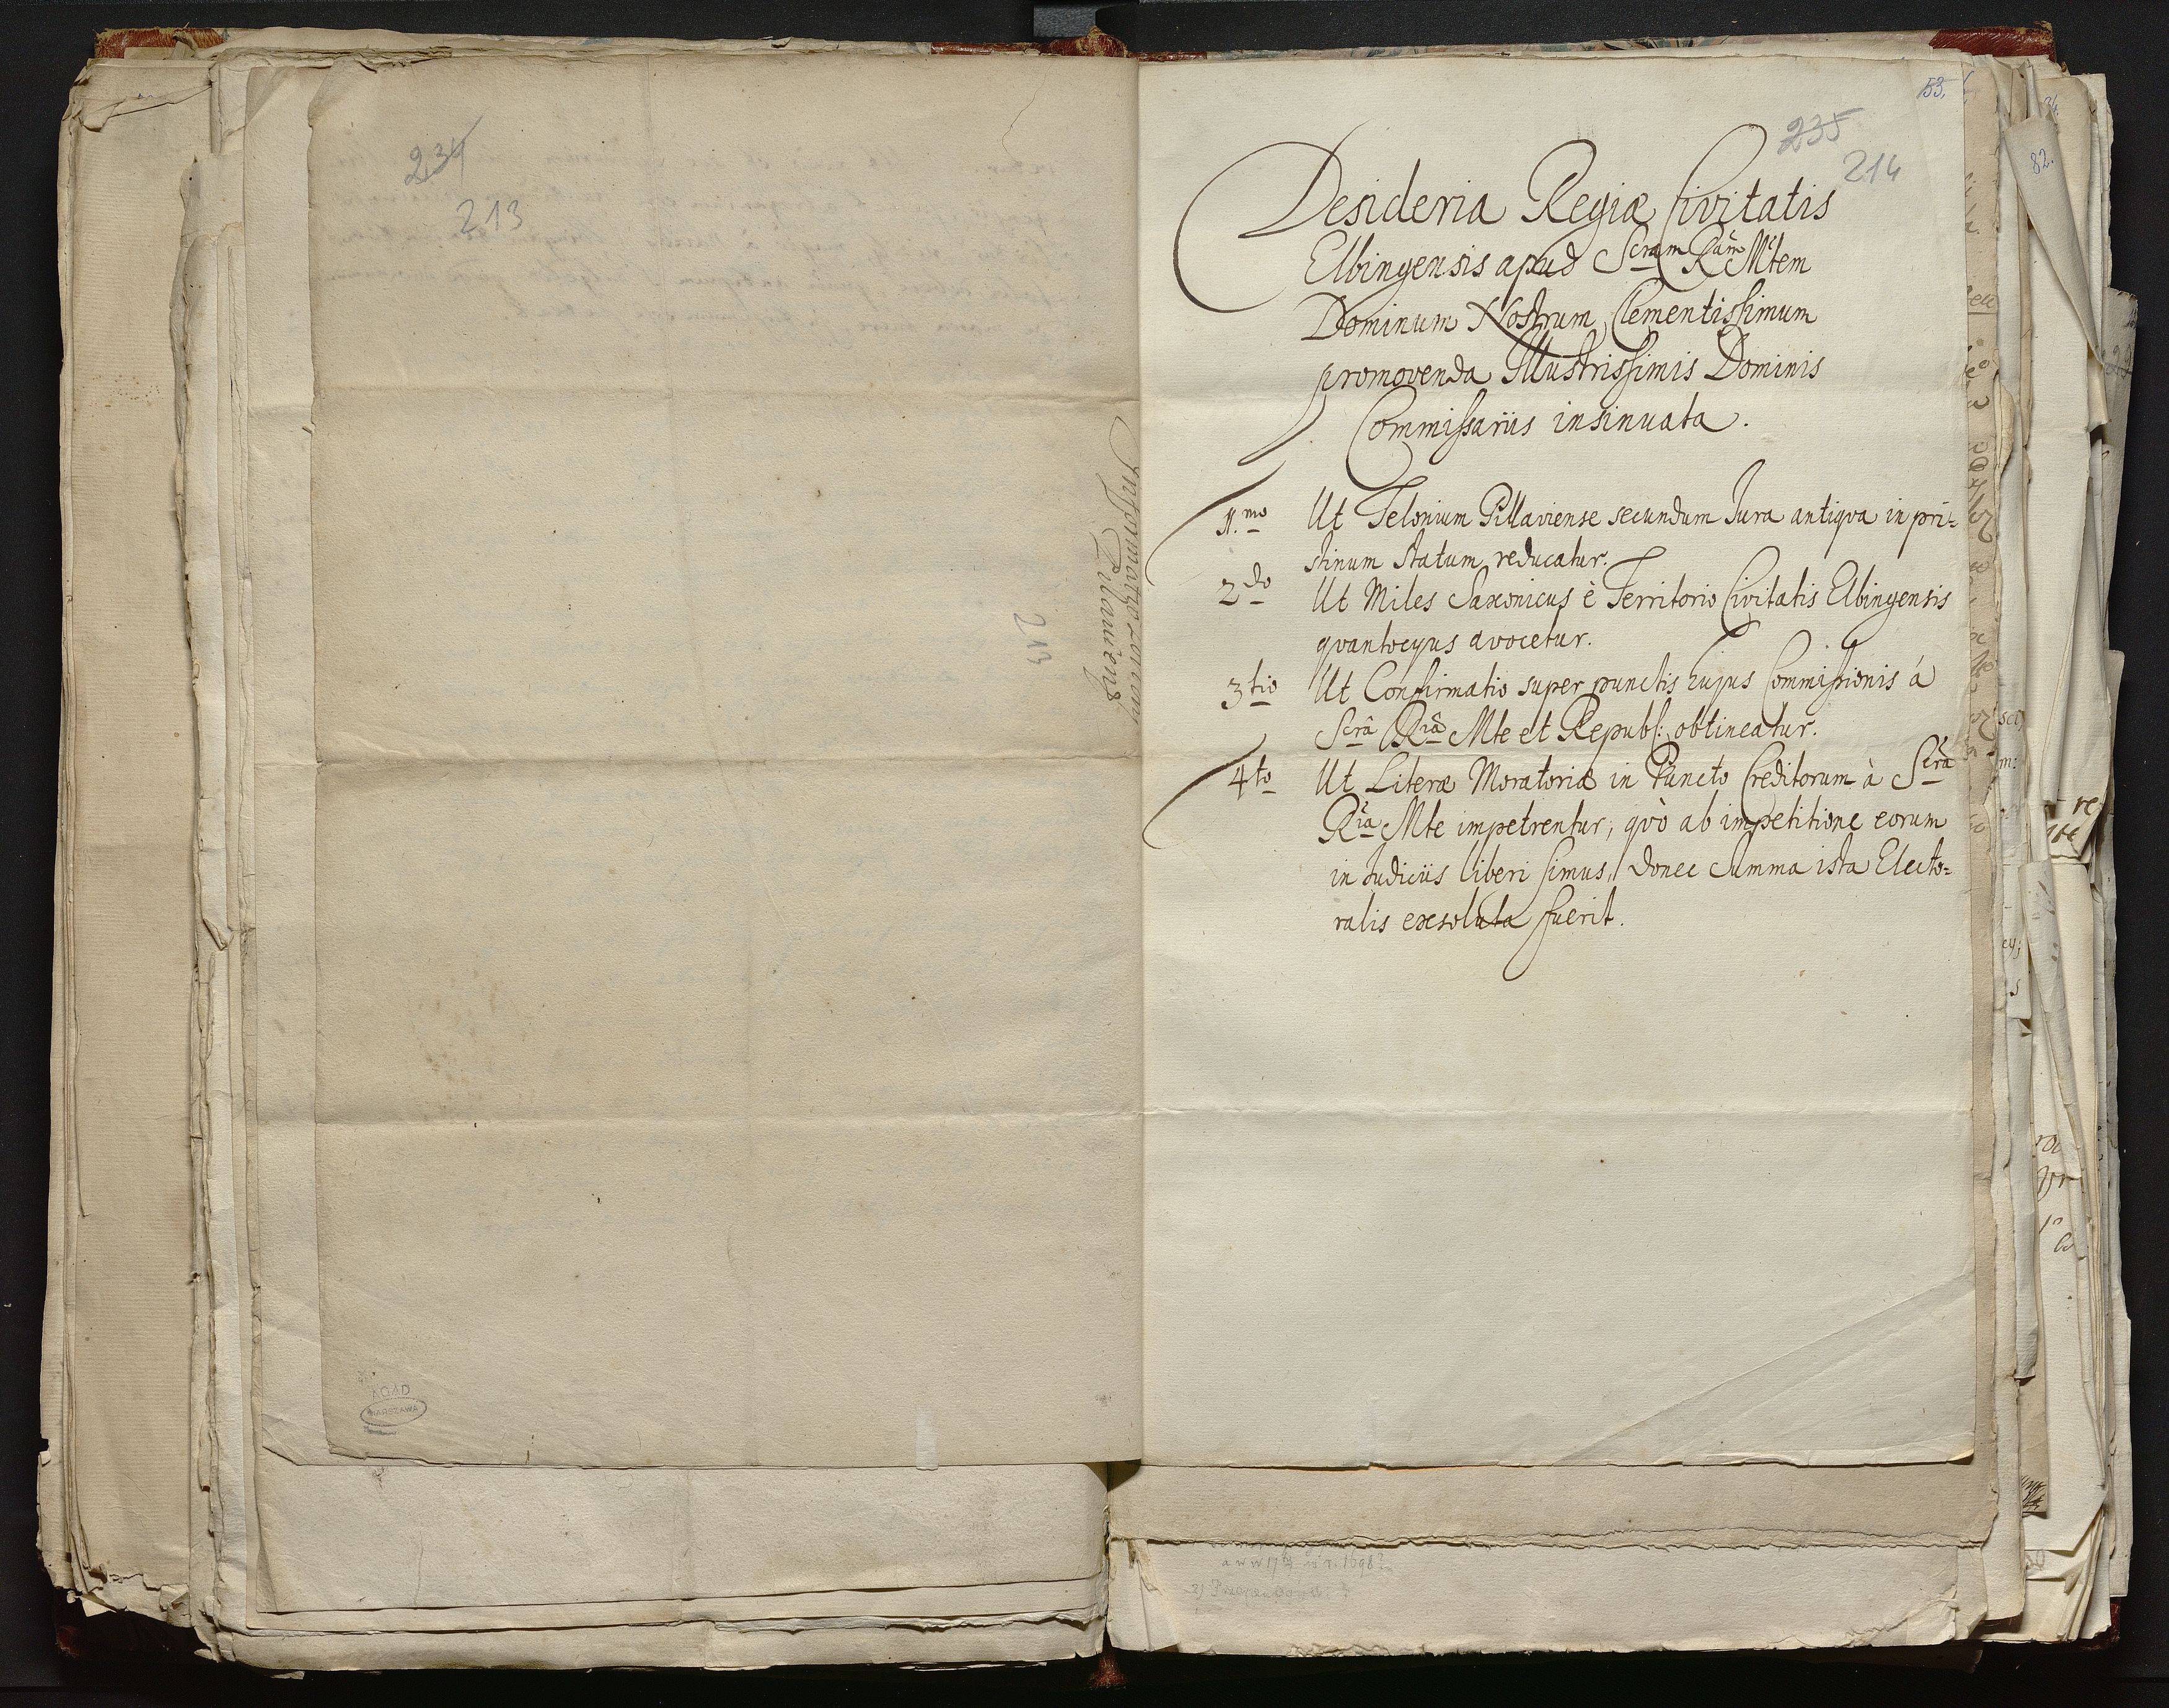 234
213
213
Pillaviens
AGAD
WARSZAWA
53.
235
214
Desideria Regiæ Civitatis
Elbingensis apud Scram Ram Mtem
Dominum Nostrum Clementissimum
promovenda Illustrissimis Dominis
Commissariis insinuata.
1.mo Ut Telonium Pillaviense secundum Jura antiqva in pri=
stinum statum reducatur.
2do Ut Miles Saxonicus è Territorio Civitatis Elbingensis
qvantocyus avocetur.
3tio Ut Confirmatio super punctis hujus Commissionis á
Scrâ Riâ Mte et Republ: obtineatur.
4to Ut Literæ Moratoriæ in Puncto Creditorum à Scrâ
Riâ Mte impetrentur, qvò ab impetitione eorum
in Judiciis liberi simus, donec Summa ista Electo=
ralis exsoluta fuerit.
82.